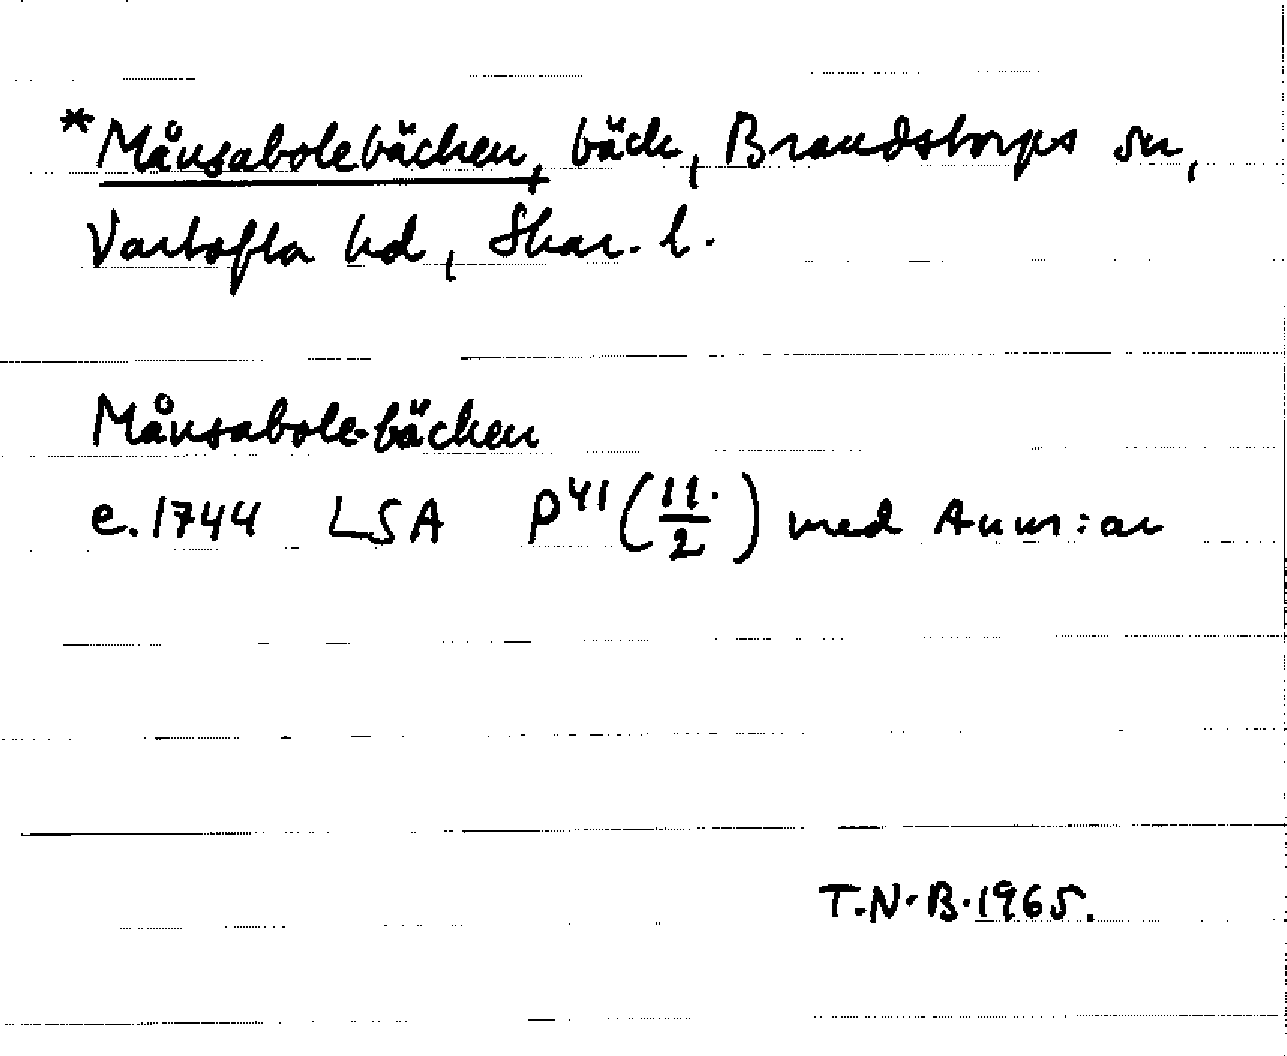 *Månsabolebäcken, bäck, Brandstorps sn,
Vartofta hd, Skar. l.
Månsabole-bäcken
e. 1744 LSA P41 (11./2) med Anm:ar
T.N.B. 1965.